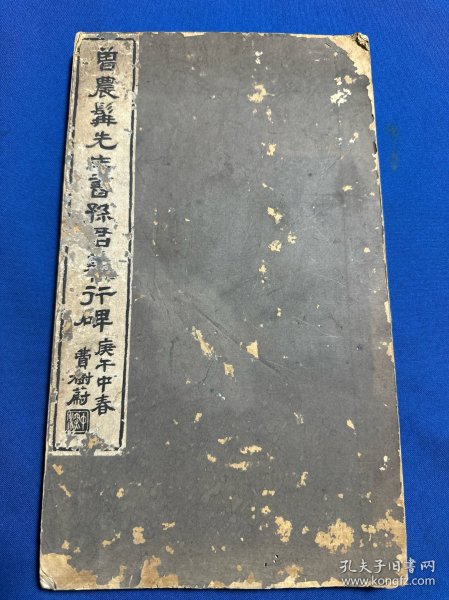 曾農髯先生書孫君 行碑
庚午中春
曹樹蔚
孔夫子旧书网
www.kongfz.com